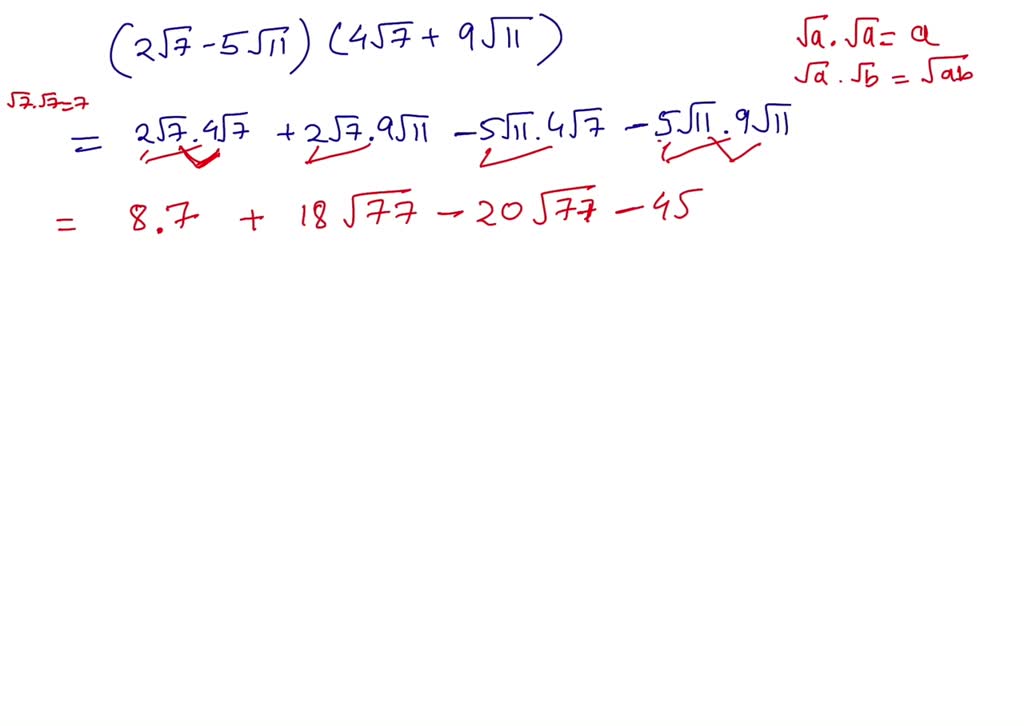 (2√7 - 5√11) (4√7 + 9√11)
√a · √a = a
√a · √b = √ab
√7.√7=7
= 2√7.4√7 + 2√7.9√11 - 5√11.4√7 - 5√11.9√11
= 8.7 + 18√77 - 20√77 - 45